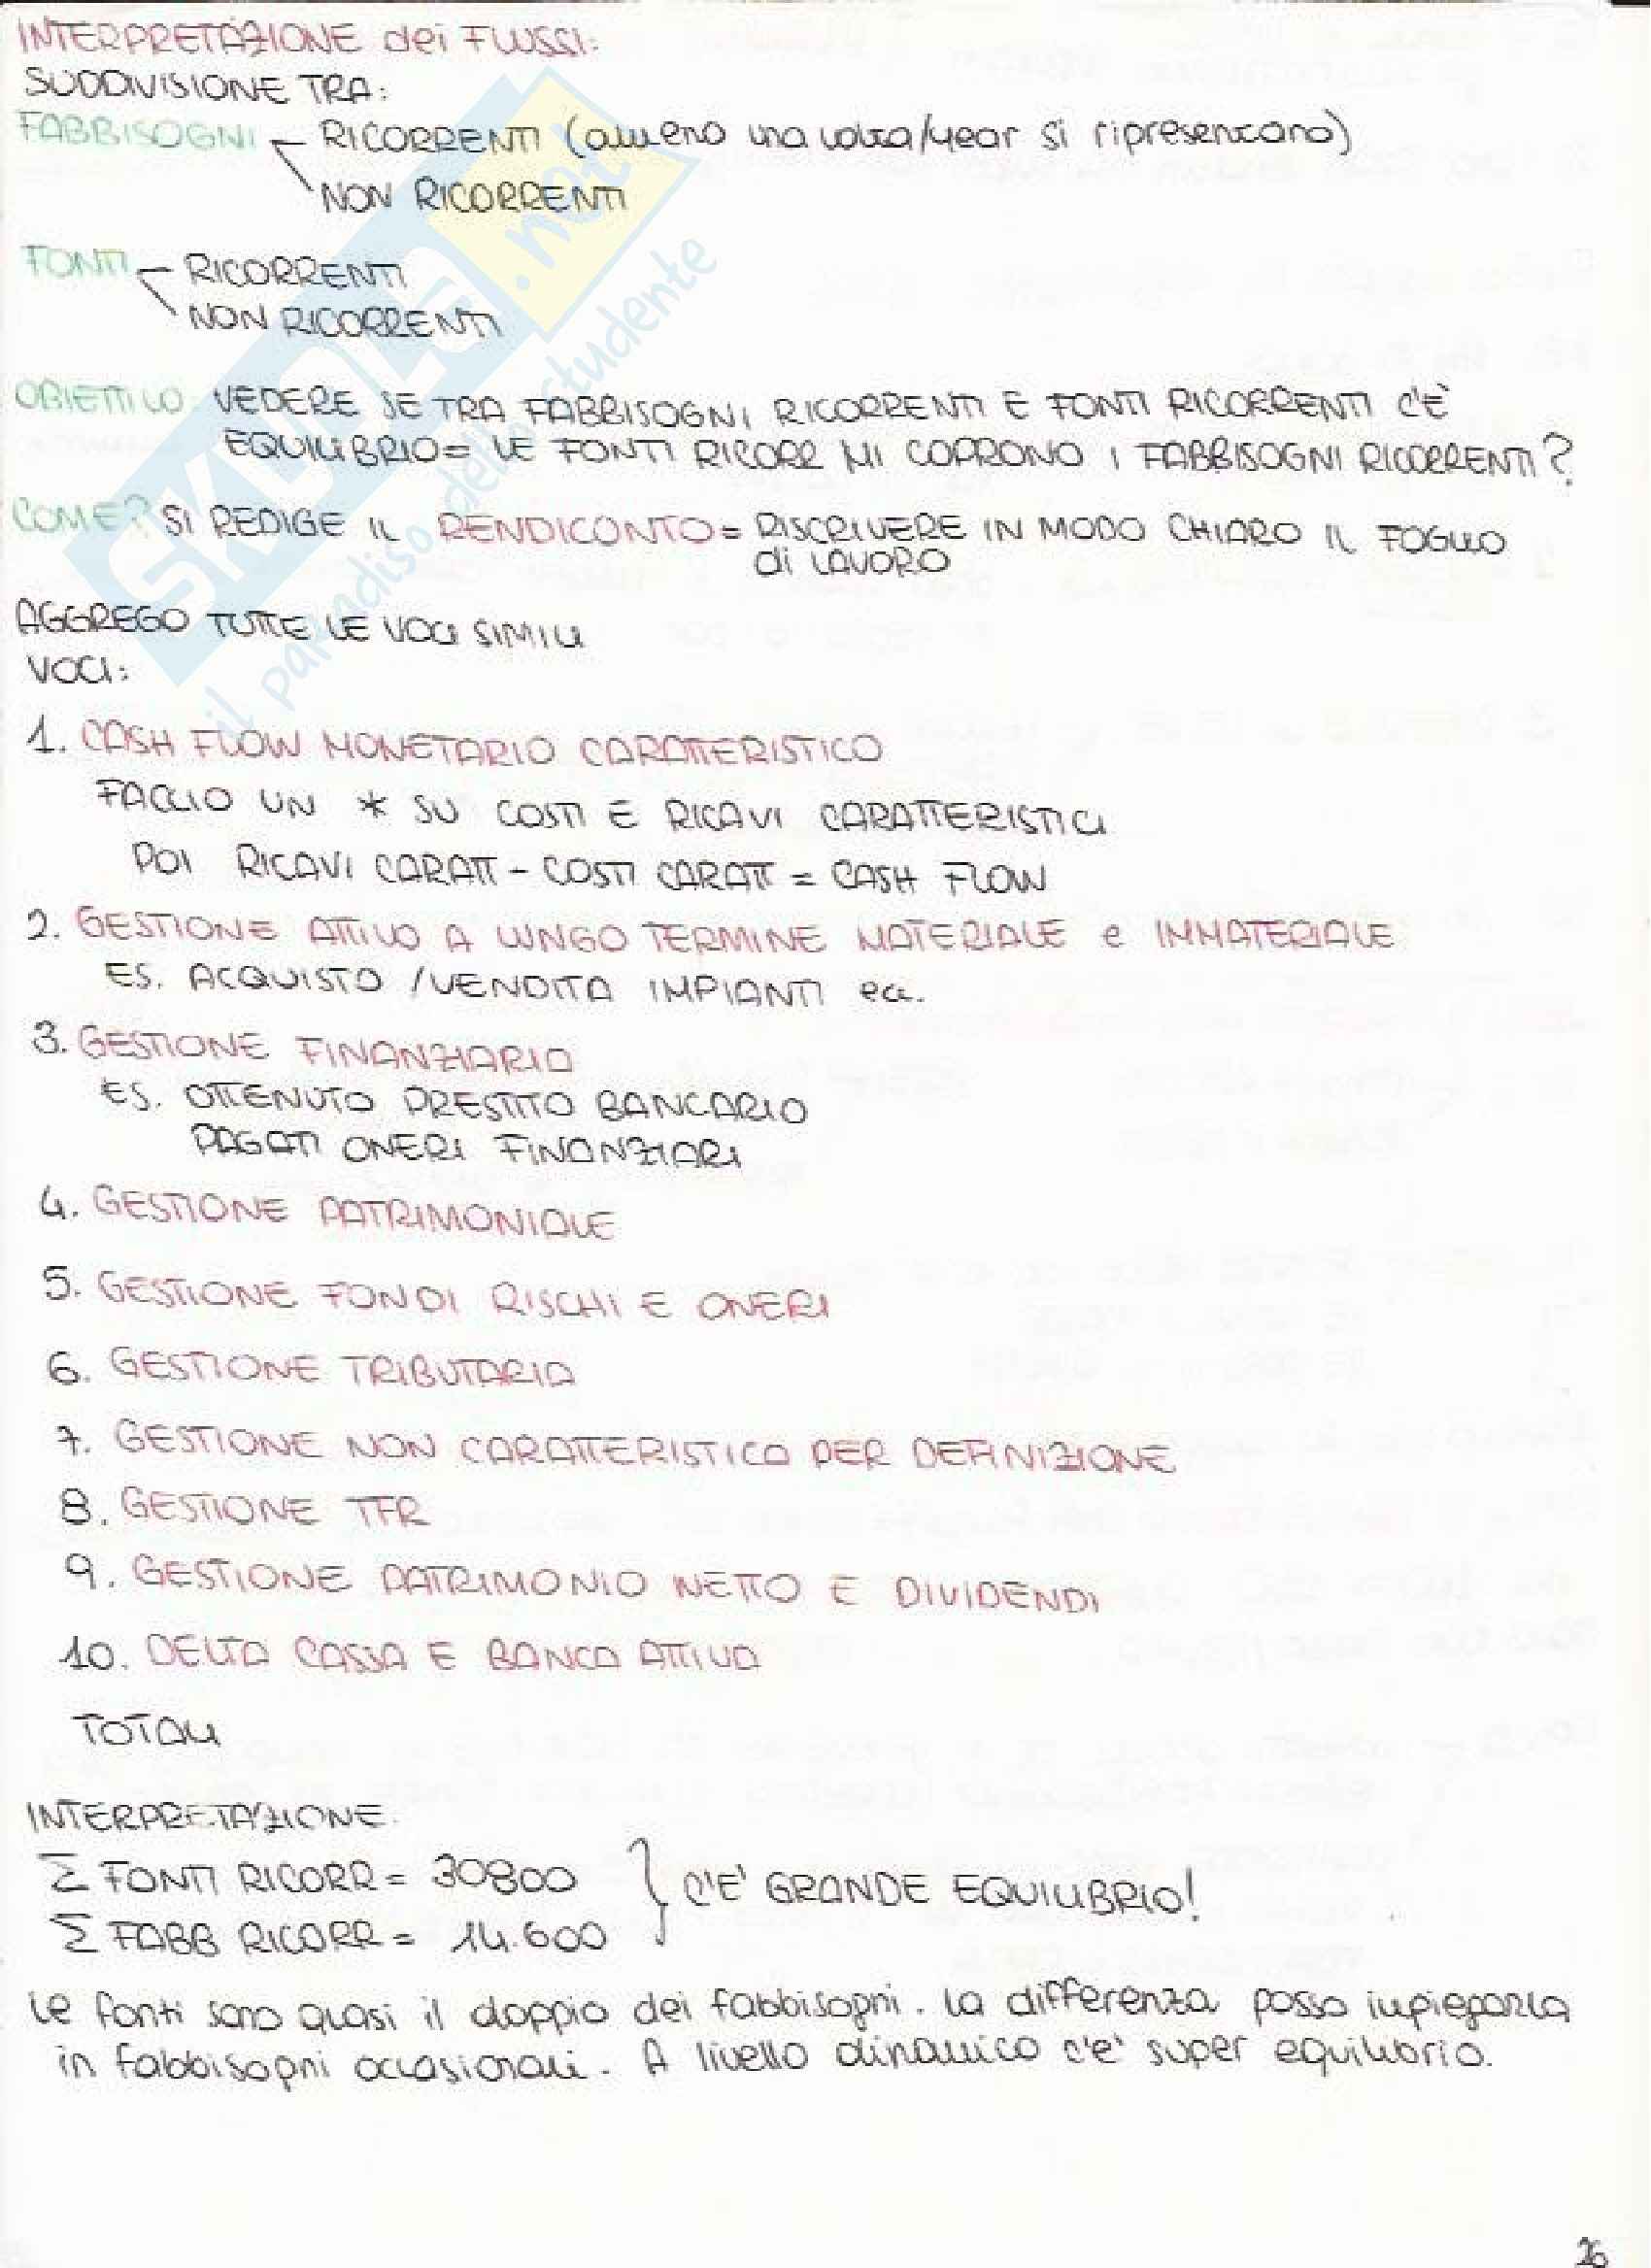 INTERPRETAZIONE dei FLUSSI:
SUDDIVISIONE TRA:
FABBISOGNI RICORRENTI (almeno una volta/year si ripresentano)
NON RICORRENTI
FONTI RICORRENTI
NON RICORRENTI
OBIETTIVO VEDERE SE TRA FABBISOGNI RICORRENTI E FONTI RICORRENTI C'È
EQUILIBRIO = LE FONTI RICORR MI COPRONO I FABBISOGNI RICORRENTI?
COME? SI REDIGE IL RENDICONTO = RISCRIVERE IN MODO CHIARO IL FOGLIO
di LAVORO
AGGREGO TUTTE LE VOCI SIMILI
VOCI:
1. CASH FLOW MONETARIO CARATTERISTICO
FACCIO UN * SU COSTI E RICAVI CARATTERISTICI
POI RICAVI CARATT - COSTI CARATT = CASH FLOW
2. GESTIONE ATTIVO A LUNGO TERMINE MATERIALE e IMMATERIALE
ES. ACQUISTO / VENDITA IMPIANTI ecc.
3. GESTIONE FINANZIARIA
ES. OTTENUTO PRESTITO BANCARIO
PAGATI ONERI FINANZIARI
4. GESTIONE PATRIMONIALE
5. GESTIONE FONDI RISCHI E ONERI
6. GESTIONE TRIBUTARIA
7. GESTIONE NON CARATTERISTICA PER DEFINIZIONE
8. GESTIONE TFR
9. GESTIONE PATRIMONIO NETTO E DIVIDENDI
10. DELTA CASSA E BANCA ATTIVA
TOTALI
INTERPRETAZIONE.
Σ FONTI RICORR = 30800
C'E' GRANDE EQUILIBRIO!
Σ FABB RICORR = 14.600
Le fonti sono quasi il doppio dei fabbisogni. La differenza posso impiegarla
in fabbisogni occasionali. A livello dinamico c'e' super equilibrio.
26
SKUOLA.net
il paradiso dello studente